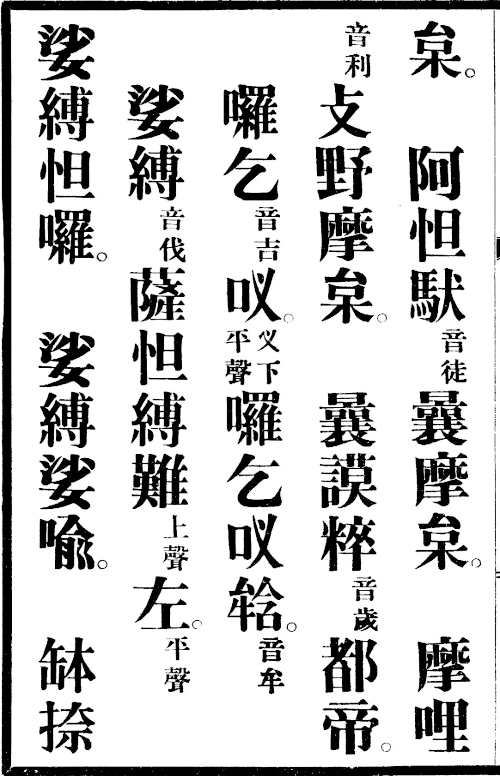 枲。 阿怛馱音徒曩摩枲。 摩哩
音利支野摩枲。 曩謨粹音歲都帝。
囉乞音吉㕹。㕹下平聲囉乞㕹𤙖。音牟
娑縛音伐薩怛縛難上聲左。平聲
娑縛怛囉。 娑縛娑喩。 缽捺